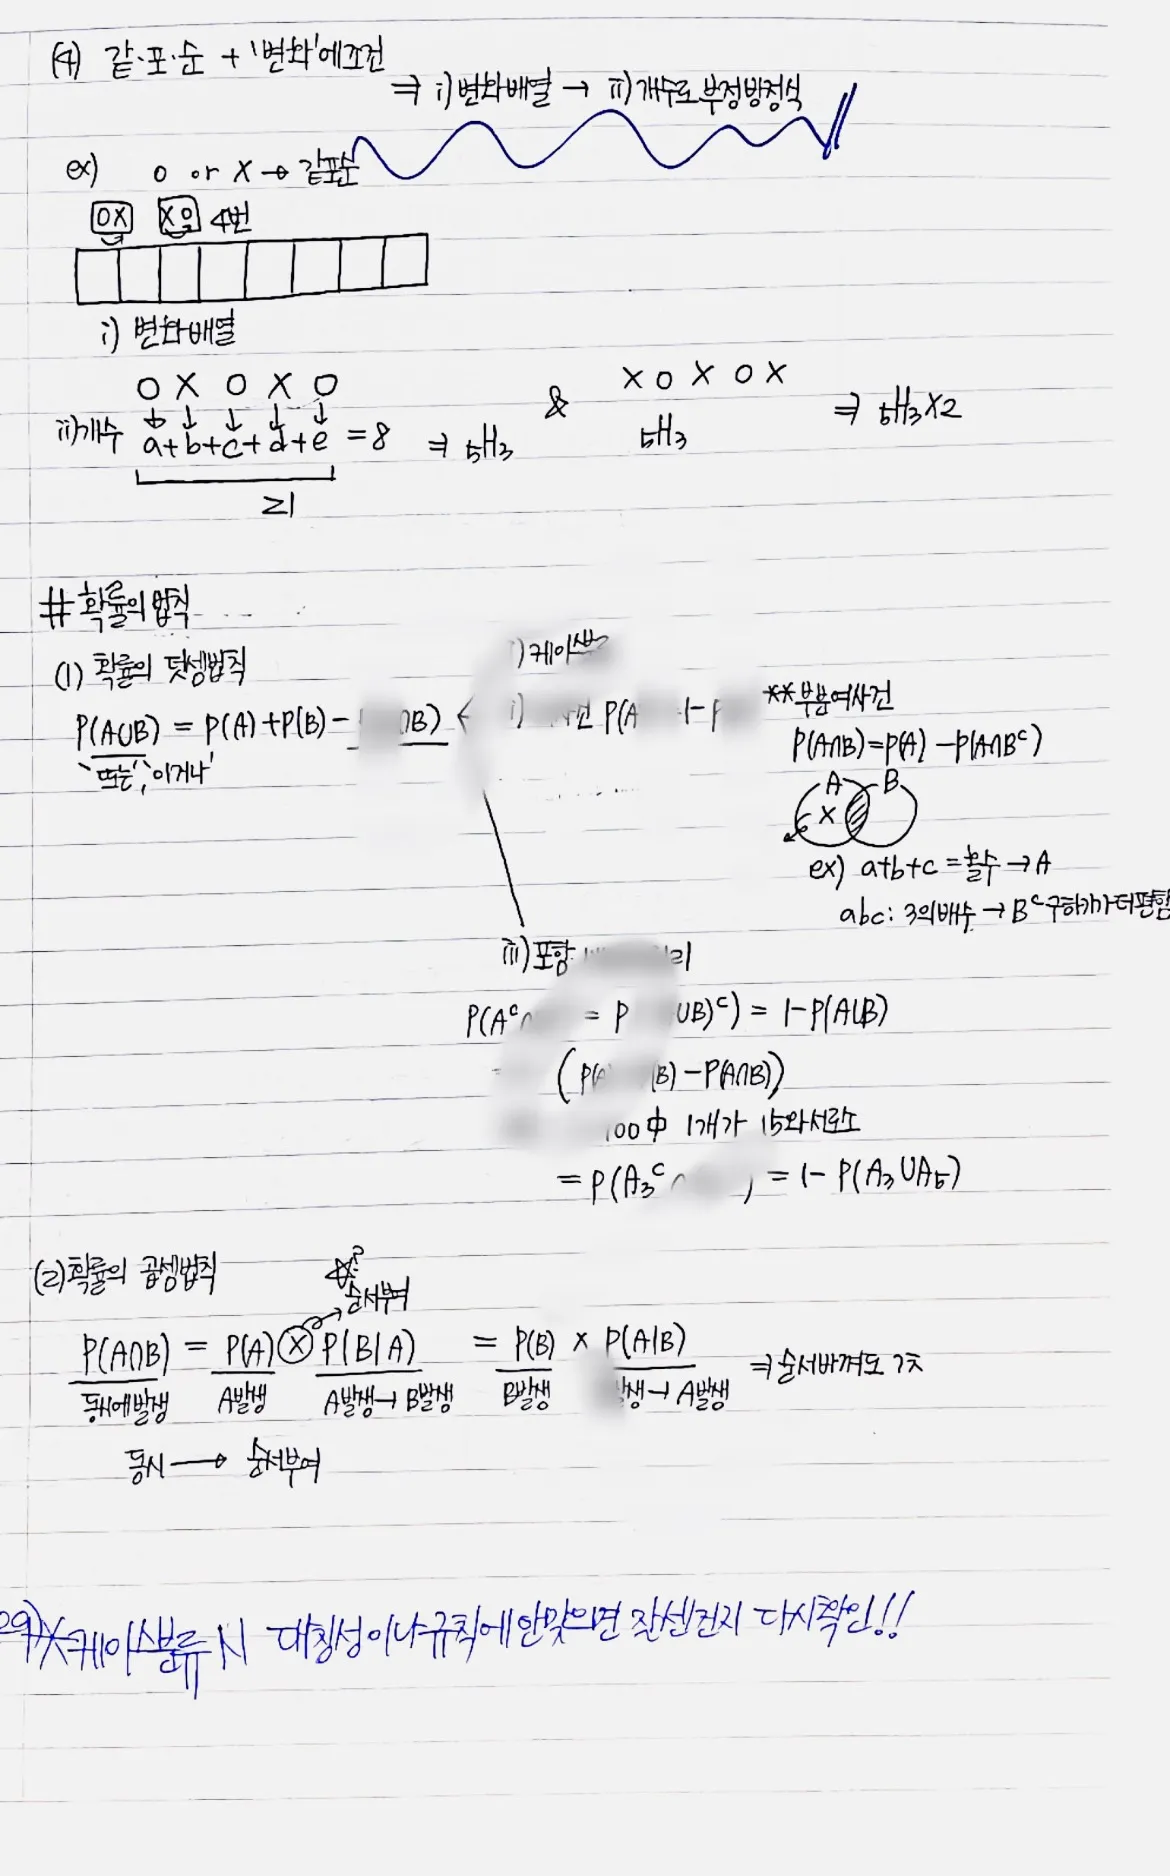 (4) 같·포·순 + '변화'에조건
⇒ i) 변화배열 → ii) 개수로 부정방정식
ex) O or X → 같포순
OX XO 4번
i) 변화배열
O X O X O & X O X O X
ii) 개수 a+b+c+d+e = 8 ⇒ ₅H₃ ₅H₃ ⇒ ₅H₃×2
≥1
# 확률의 법칙
(1) 확률의 덧셈법칙
i) 케이스
P(A∪B) = P(A)+P(B)- ∩B) < i) P(A 1-P
'또는', '이거나'
**부분여사건
P(A∩B)=P(A)-P(A∩Bᶜ)
A B
X
ex) a+b+c = 홀수 → A
abc: 3의배수 → Bᶜ구하기가 더편함
iii) 포함 리
P(Aᶜ∩ = P ∪B)ᶜ) = 1-P(A∪B)
(P(A) (B)-P(A∩B))
100中 1개가 15와서로소
= P(A₃ᶜ∩ ) = 1- P(A₃∪A₅)
(2) 확률의 곱셈법칙
순서부여
P(A∩B) = P(A) × P(B|A) = P(B) × P(A|B) ⇒ 순서바껴도 가
동시에발생 A발생 A발생→B발생 B발생 발생→A발생
동시 → 순서부여
29) 케이스분류 시 대칭성이나 규칙에 안맞으면 잘센건지 다시확인!!